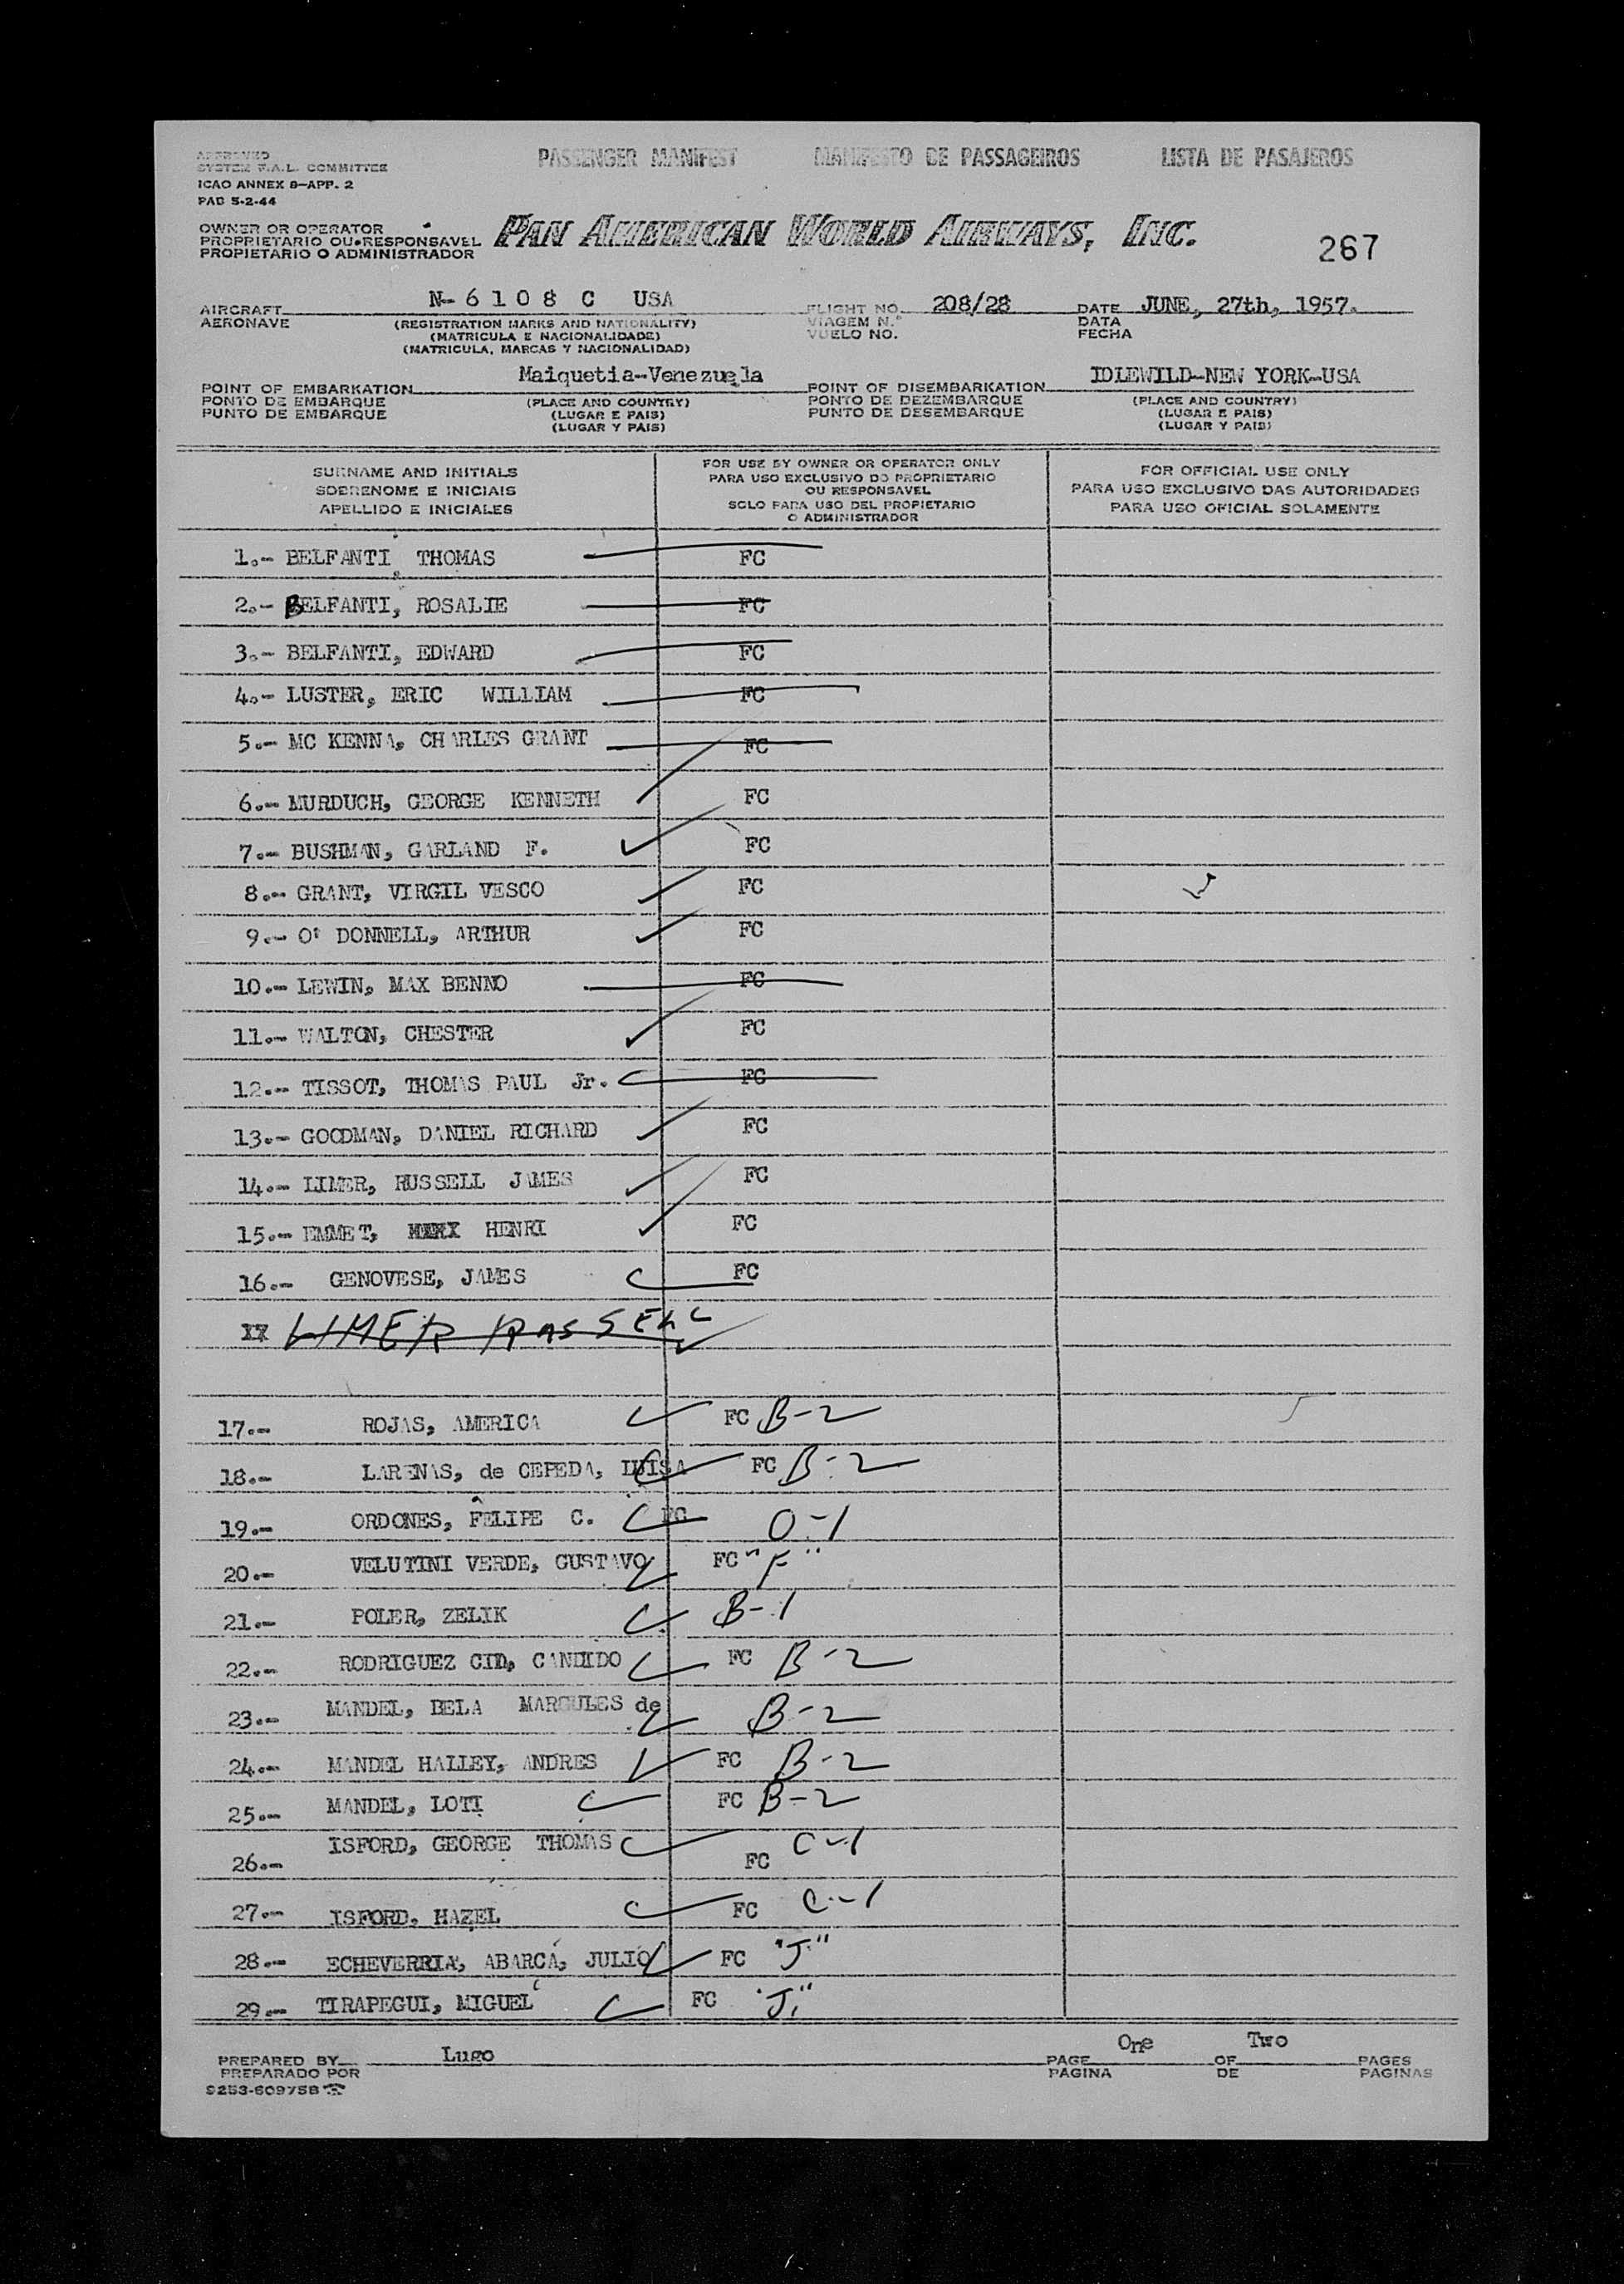 APPROVED
SYSTEM F.A.L. COMMITTEE
ICAO ANNEX 9-APP. 2
PAB 5-2-44
PASSENGER MANIFEST MANIFESTO DE PASSAGEIROS LISTA DE PASAJEROS
OWNER OR OPERATOR
PROPRIETARIO OU RESPONSAVEL
PROPIETARIO O ADMINISTRADOR
PAN AMERICAN WORLD AIRWAYS, INC.
267
AIRCRAFT N-6108 C USA FLIGHT NO. 208/28 DATE JUNE, 27th, 1957.
AERONAVE (REGISTRATION MARKS AND NATIONALITY) VIAGEM N.º DATA
(MATRICULA E NACIONALIDADE) VUELO NO. FECHA
(MATRICULA, MARCAS Y NACIONALIDAD)
POINT OF EMBARKATION Maiquetia-Venezuela POINT OF DISEMBARKATION IDLEWILD-NEW YORK-USA
PONTO DE EMBARQUE (PLACE AND COUNTRY) PONTO DE DEZEMBARQUE (PLACE AND COUNTRY)
PUNTO DE EMBARQUE (LUGAR E PAIS) PUNTO DE DESEMBARQUE (LUGAR E PAIS)
(LUGAR Y PAIS) (LUGAR Y PAIS)
SURNAME AND INITIALS
SOBRENOME E INICIAIS
APELLIDO E INICIALES
FOR USE BY OWNER OR OPERATOR ONLY
PARA USO EXCLUSIVO DO PROPRIETARIO
OU RESPONSAVEL
SOLO PARA USO DEL PROPIETARIO
O ADMINISTRADOR
FOR OFFICIAL USE ONLY
PARA USO EXCLUSIVO DAS AUTORIDADES
PARA USO OFICIAL SOLAMENTE
1.- BELFANTI THOMAS FC
2.- BELFANTI, ROSALIE FC
3.- BELFANTI, EDWARD FC
4.- LUSTER, ERIC WILLIAM FC
5.- MC KENNA, CHARLES GRANT FC
6.- MURDUCH, GEORGE KENNETH FC
7.- BUSHMAN, GARLAND F. FC
8.- GRANT, VIRGIL VESCO FC
9.- O' DONNELL, ARTHUR FC
10.- LEWIN, MAX BENNO FC
11.- WALTON, CHESTER FC
12.- TISSOT, THOMAS PAUL Jr. FC
13.- GOODMAN, DANIEL RICHARD FC
14.- LIMER, RUSSELL JAMES FC
15.- EMMET, HENRI FC
16.- GENOVESE, JAMES FC
LIMER RASSELL
17.- ROJAS, AMERICA FC B-2
18.- LARENAS, de CEPEDA, LUISA FC B-2
19.- ORDONES, FELIPE C. FC O-1
20.- VELUTINI VERDE, GUSTAVO FC "F"
21.- POLER, ZELIK B-1
22.- RODRIGUEZ CID, CANDIDO FC B-2
23.- MANDEL, BELA MARGULES de B-2
24.- MANDEL HALLEY, ANDRES FC B-2
25.- MANDEL, LOTI FC B-2
26.- ISFORD, GEORGE THOMAS FC C-1
27.- ISFORD, HAZEL FC C-1
28.- ECHEVERRIA, ABARCA, JULIO FC "J"
29.- TIRAPEGUI, MIGUEL FC "J"
PREPARED BY Lugo PAGE One OF Two PAGES
PREPARADO POR PAGINA DE PAGINAS
9253-609758